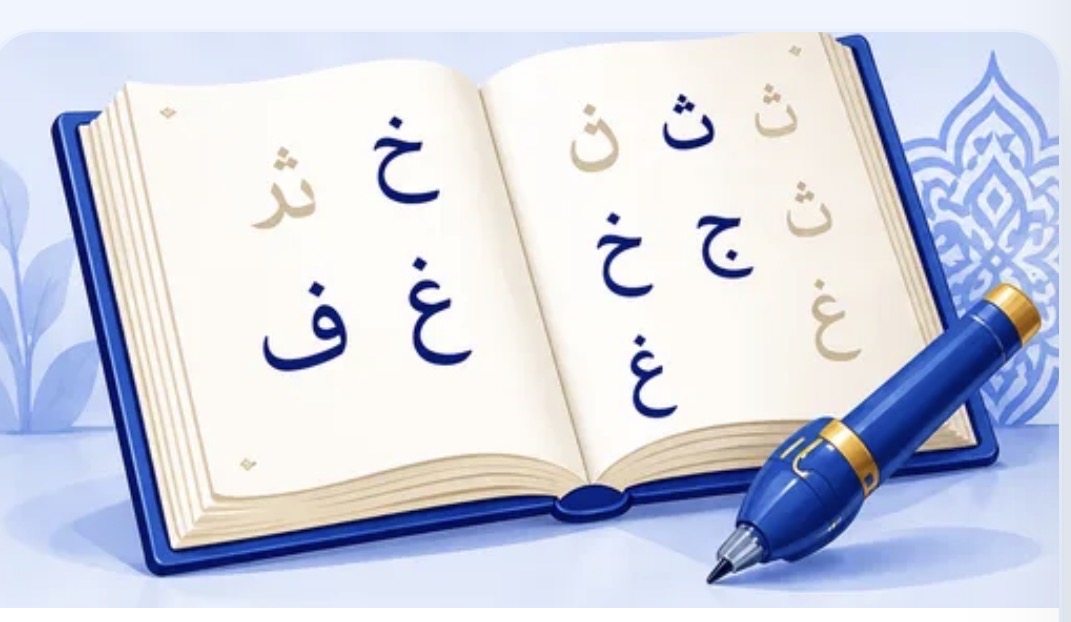 ث ث
ث ج خ
غ
غ
خ ثر
غ ف